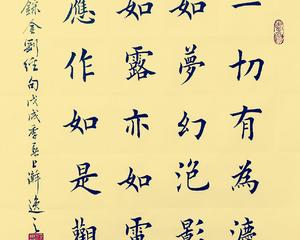 一切有為灋
如夢幻泡影
如露亦如電
應作如是觀
錄金剛經句戊戌季春上澣逸之